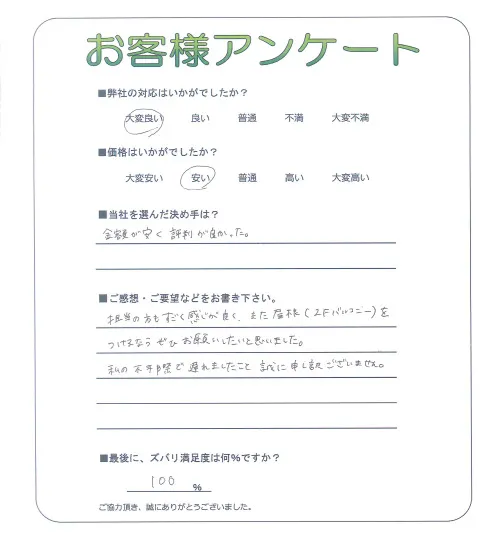 お客様アンケート
■弊社の対応はいかがでしたか？
大変良い 良い 普通 不満 大変不満
■価格はいかがでしたか？
大変安い 安い 普通 高い 大変高い
■当社を選んだ決め手は？
金額が安く 評判が良かった。
■ご感想・ご要望などをお書き下さい。
担当の方もすごく感じが良く、また屋根(2Fバルコニー)を
つけるなら ぜひ お願いしたいと思いました。
私の不手際で遅れましたこと 誠に申し訳ございません。
■最後に、ズバリ満足度は何%ですか？
100 %
ご協力頂き、誠にありがとうございました。